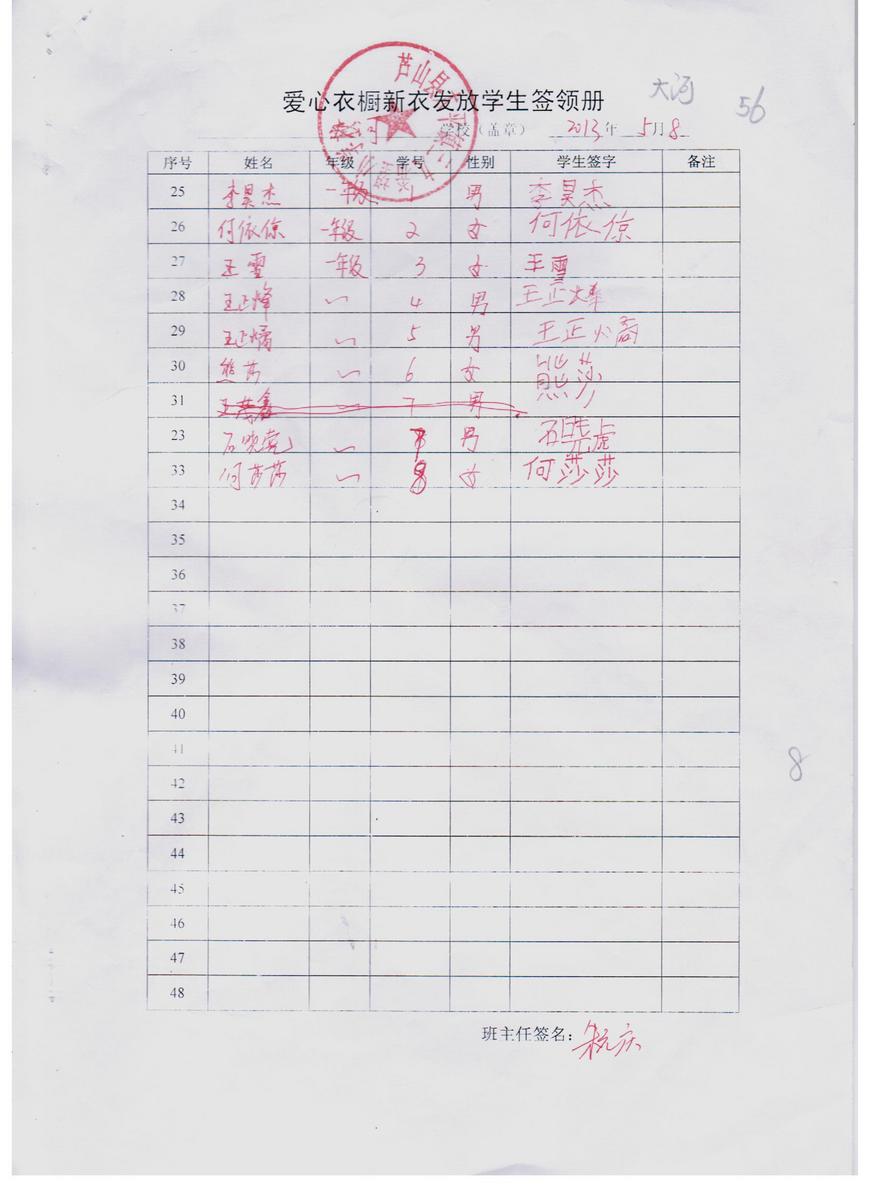 大河
56
爱心衣橱新衣发放学生签领册
学校（盖章） 2013年 5月8
序号 姓名 年级 学号 性别 学生签字 备注
25 李昊杰 一年级 1 男 李昊杰
26 何依倞 一年级 2 女 何依倞
27 王雪 一年级 3 女 王雪
28 王正烽 4 男 王正烽
29 王正燏 5 男 王正燏
30 熊莎 6 女 熊莎
31 7 男
23 男
33 何莎莎 8 女 何莎莎
34
35
36
37
38
39
40
41
8
42
43
44
45
46
47
48
班主任签名：